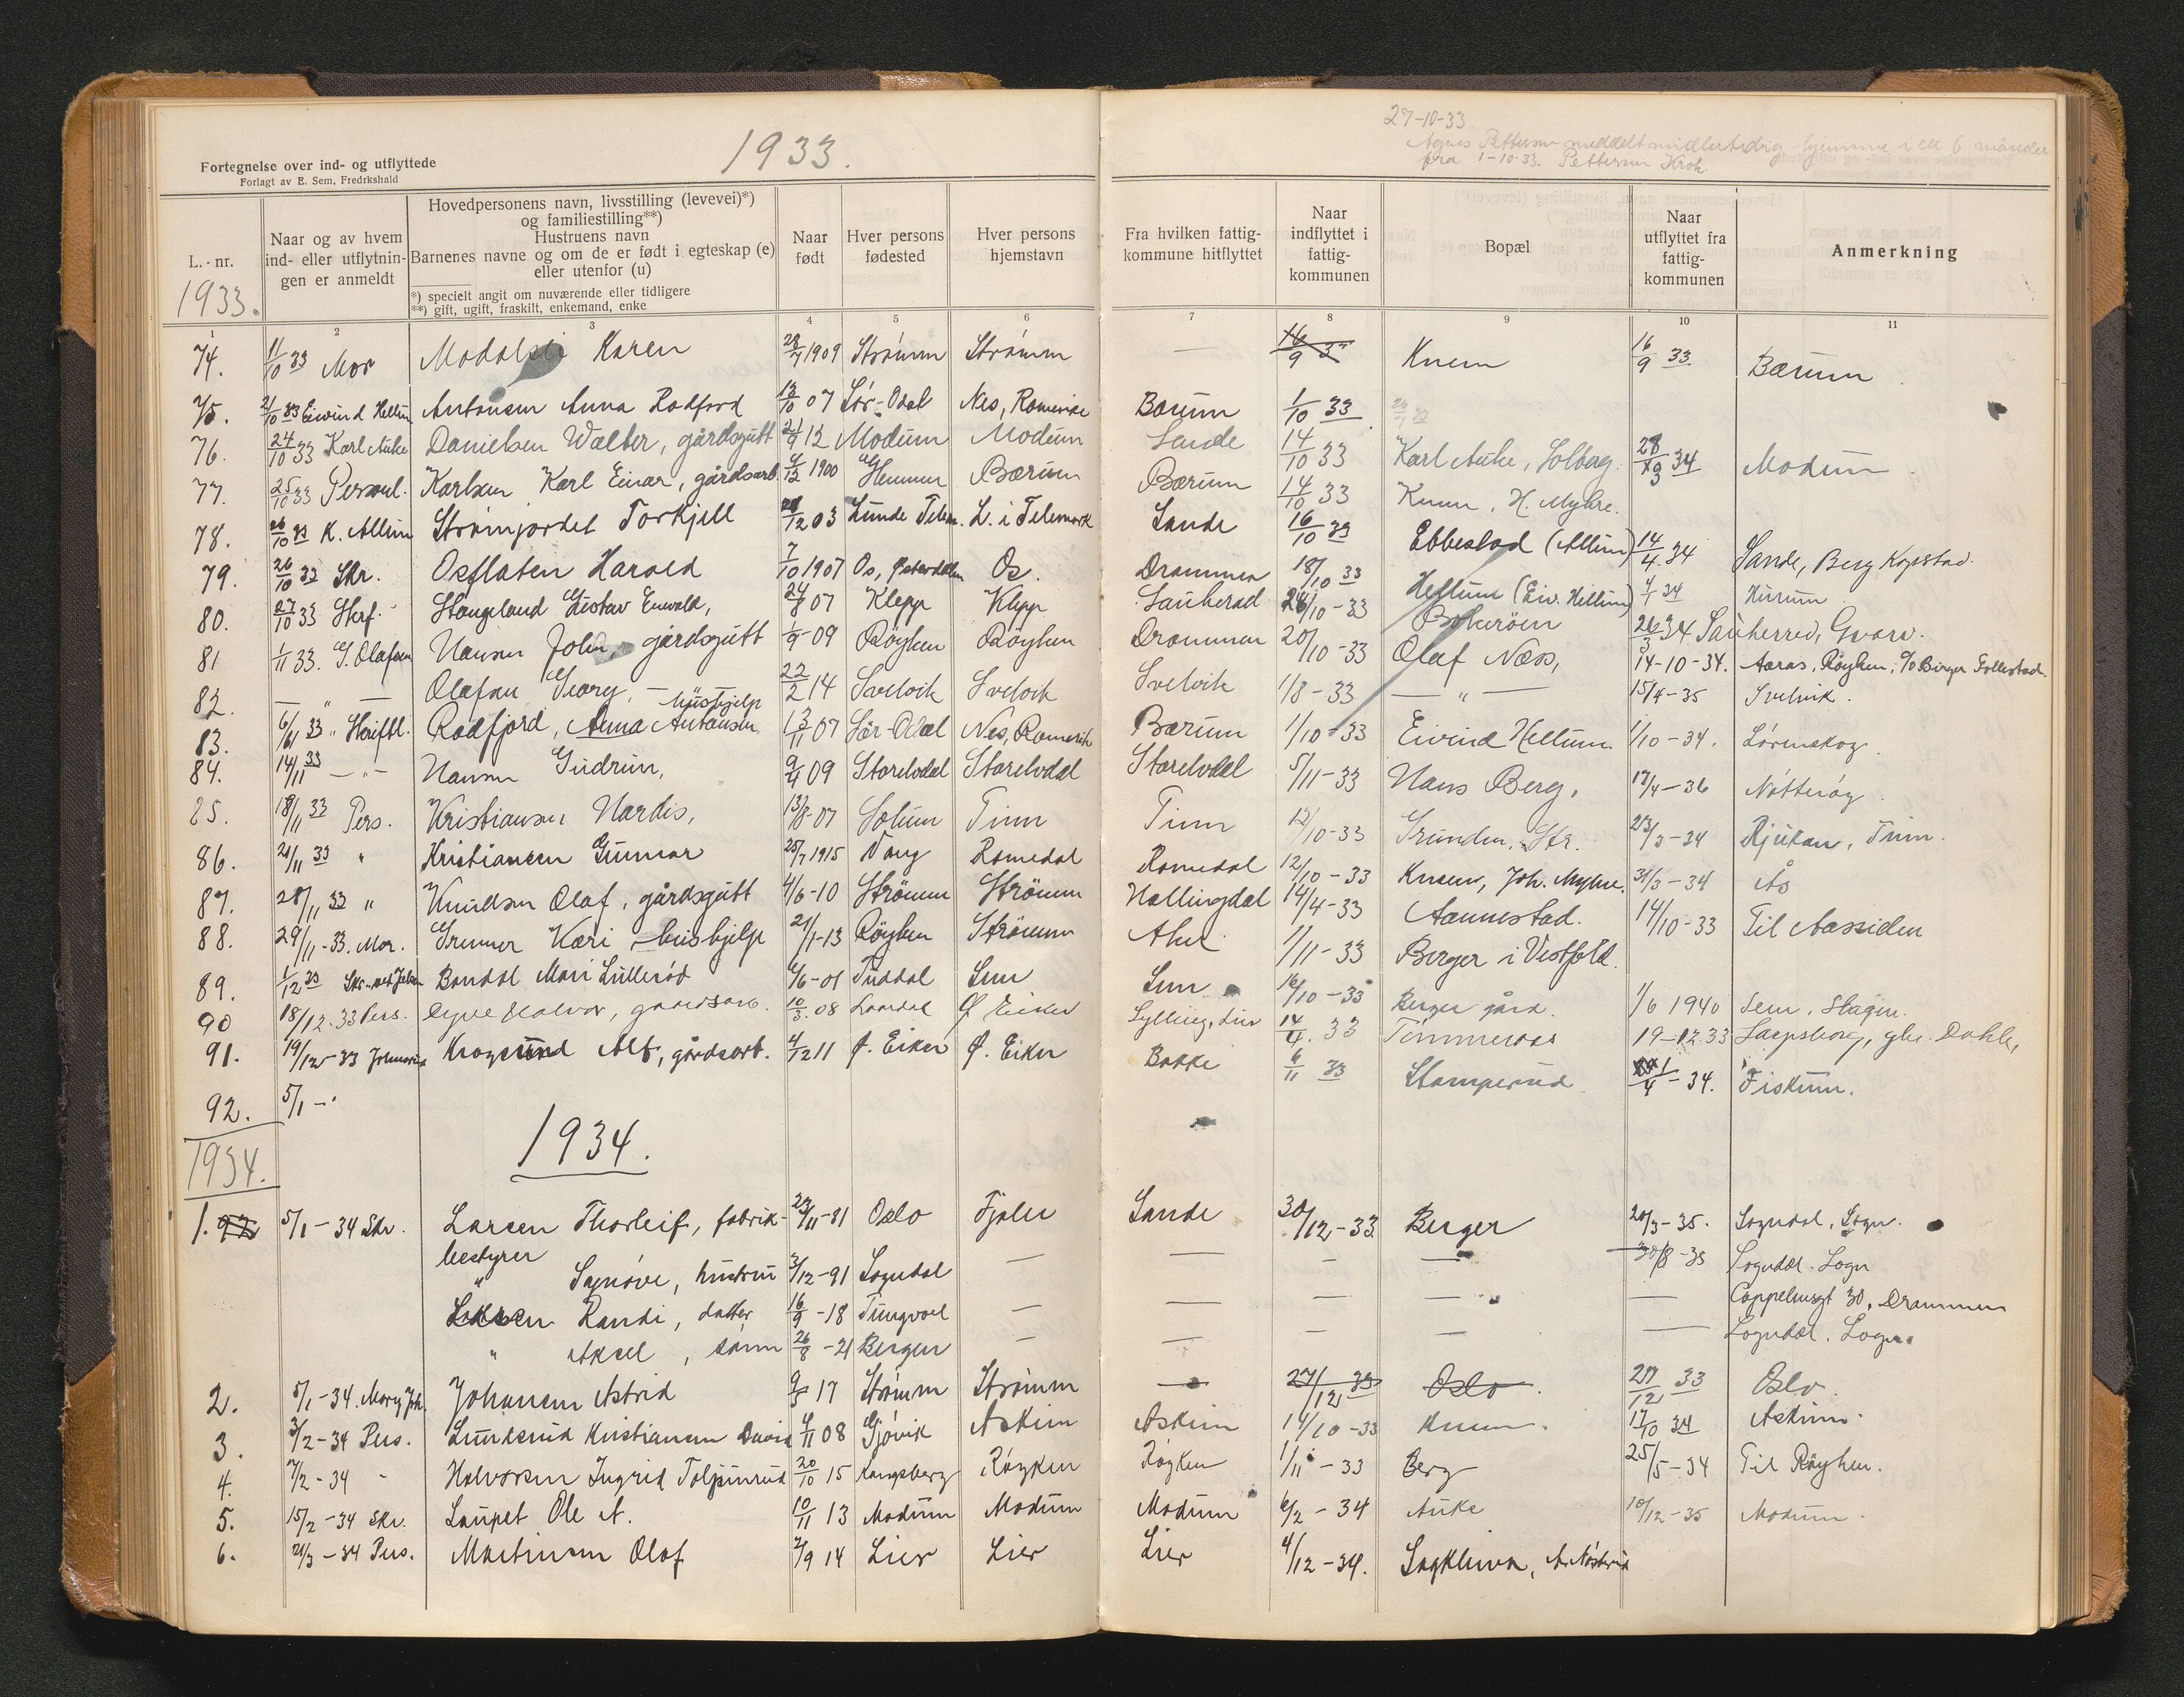 1933.
27-10-33
Agnes Pettersen meddelt midlertidig hjemme i ca 6 måneder
fra 1-10-33. Pettersen Krok.
Fortegnelse over ind- og utflyttede
Forlagt av E. Sem, Fredrkshald
L.-nr.
1933.
Naar og av hvem ind- eller utflytnin-gen er anmeldt
Hovedpersonens navn, livsstilling (levevei)*)
og familiestilling**)
Hustruens navn
Barnenes navne og om de er født i egteskap (e)
eller utenfor (u)
*) specielt angit om nuværende eller tidligere
**) gift, ugift, fraskilt, enkemand, enke
Naar født
Hver persons fødested
Hver persons hjemstavn
Fra hvilken fattig-kommune hitflyttet
Naar indflyttet i fattig-kommunen
Bopæl
Naar utflyttet fra fattig-kommunen
Anmerkning
1 2 3 4 5 6 7 8 9 10 11
74. 11/10 33 Mor Karen 28/7 1909 Strømm Strømm — 16/9 33 Knem 16/9 33 Bærum
75. 21/10 33 Eivind Hellum Antonsen Anna Rodfjord 13/10 07 Sør-Odal Nes, Romerike Bærum 1/10 33
76. 24/10 33 Karl Auke Danielsen Walter, gårdsgutt 21/9 12 Modum Modum Sande 14/10 33 Karl Auke, Solberg 28/3 34 Modum
77. 25/10 33 Personl. Karlsen Karl Einar, gårdsarb. 4/12 1900 Hemmen Bærum Bærum 14/10 33 Knem, H. Myhre.
78. 26/10 33 K. Allum Strømjordet Torkjell 28/12 03 Lunde Telem. L. i Telemark Sande 16/10 33 Ebbestad (Allum) 14/4 34 Sande, Berg Kopstad.
79. 26/10 33 Skr. Osflaten Harald 7/10 1907 Os, Østerdalen Os. Drammen 18/10 33 Hellum (Eiv. Hellum) 4/1 34 Hurum
80. 27/10 33 Skrf. Stangeland Gustav Enwald, 24/8 07 Klepp Klepp Sauherad 26/10-33 26/3 34 Sauherred, Gvarv.
81 1/11 33. G. Olafsen Hansen John, gårdsgutt 1/9-09 Røyken Røyken Drammen 20/10-33 Olaf Næss, 14-10-34. Aaros, Røyken, c/o Birger Follestad.
82. — " — Olafsen Georg, — 22/2 14 Svelvik Svelvik Svelvik 1/8-33 — " — 15/4-35 Svelvik.
83. 6/11 33 " Skriftl. Rodfjord, Anna Antonsen, hushjelp 13/11 07 Sør-Odal Nes, Romerik Bærum 1/10-33 Eivind Hellum 1/10-34. Lørenskog.
84. 14/11 33 — " — Hansen Gudrun, 9/4 09 Storelvdal Storelvdal Storelvdal 5/11-33 Hans Berg, 17/4-36 Nøtterøy.
85. 18/11 33 Pers. Kristiansen Hardis, 13/8-07 Solum Tinn Tinn 12/10-33 Grunden, Str. 23/3-34 Rjukan, Tinn.
86. 21/11 33 " Kristiansen Gunnar 25/7 1915 Vang Romedal Romedal 12/10-33 Knem, Joh. Myhre. 31/3-34 Ås
87. 28/11 33 " Knudsen Olaf, gårdsgutt 4/6-10 Strömm Strömm Hallingdal 14/4-33 Aannestad. 14/10-33 Til Aassiden
88. 29/11-33. Mor. Kari hushjelp 21/1-13 Røyken Strömm 1/11-33 Berger i Vestfold.
89. 1/12 33 Bondal Mari Lullerød 6/6-01 Tuddal Sem Sem 16/10-33 Berger gård. 1/6 1940 Sem, Slagen.
90 18/12.33 Pers. Halvor, gaardsarb. 10/3.08 Ø Eiker Sylling, Lier 14/4. 33 Timmeraas 19-12.33 Sarpsborg, Dahle,
91. 19/12-33 Krogsund Alf, gårdsarb. 4/12 11 Ø. Eiker Ø. Eiker Bakke 6/11 33 Stamperud 1/4-34. Fiskum.
92. 5/1 - "
1934.
1934.
1. 93 5/1-34 Skr. Larsen Thorleif, fabrik- 23/11-81 Oslo Fjaler Sande 30/12-33 Berger 20/3-35. Sogndal, Sogn.
bestyrer
" Synøve, hustru 3/12-91 Sogndal — — - — 30/8-35 Sogndal. Sogn
Larsen Randi, datter 16/9-18 Tingvoll — — — — — Coppelensgt 30, Drammen
" Aksel, sønn 26/8-21 Bergen — — — — — Sogndal. Sogn.
2. 5/1-34. Mary Joh. Johansen Astrid 9/5 17 Strømm Strømm — 27/12 33 Oslo. 27/12 33 Oslo.
3. 3/2-34 Pers. Lundsrud Kristiansen David 4/11 08 Gjøvik Askim Askim 14/10-33 Knem. 17/10 34 Askim.
4. 7/2-34 - Halvorsen Ingrid Toljinrud 20/10 15 Kongsberg Røyken Røyken 1/11-33 Berg 25/5-34 Til Røyken.
5. 15/2-34 Skr. Laupet Ole A. 10/11 13 Modum Modum Modum 6/2-34 Auke 10/12-35 Modum.
6. 21/3-34 Pers. Martinsen Olaf 7/9 14 Lier Lier Lier 4/12-34. Sagkleiva,